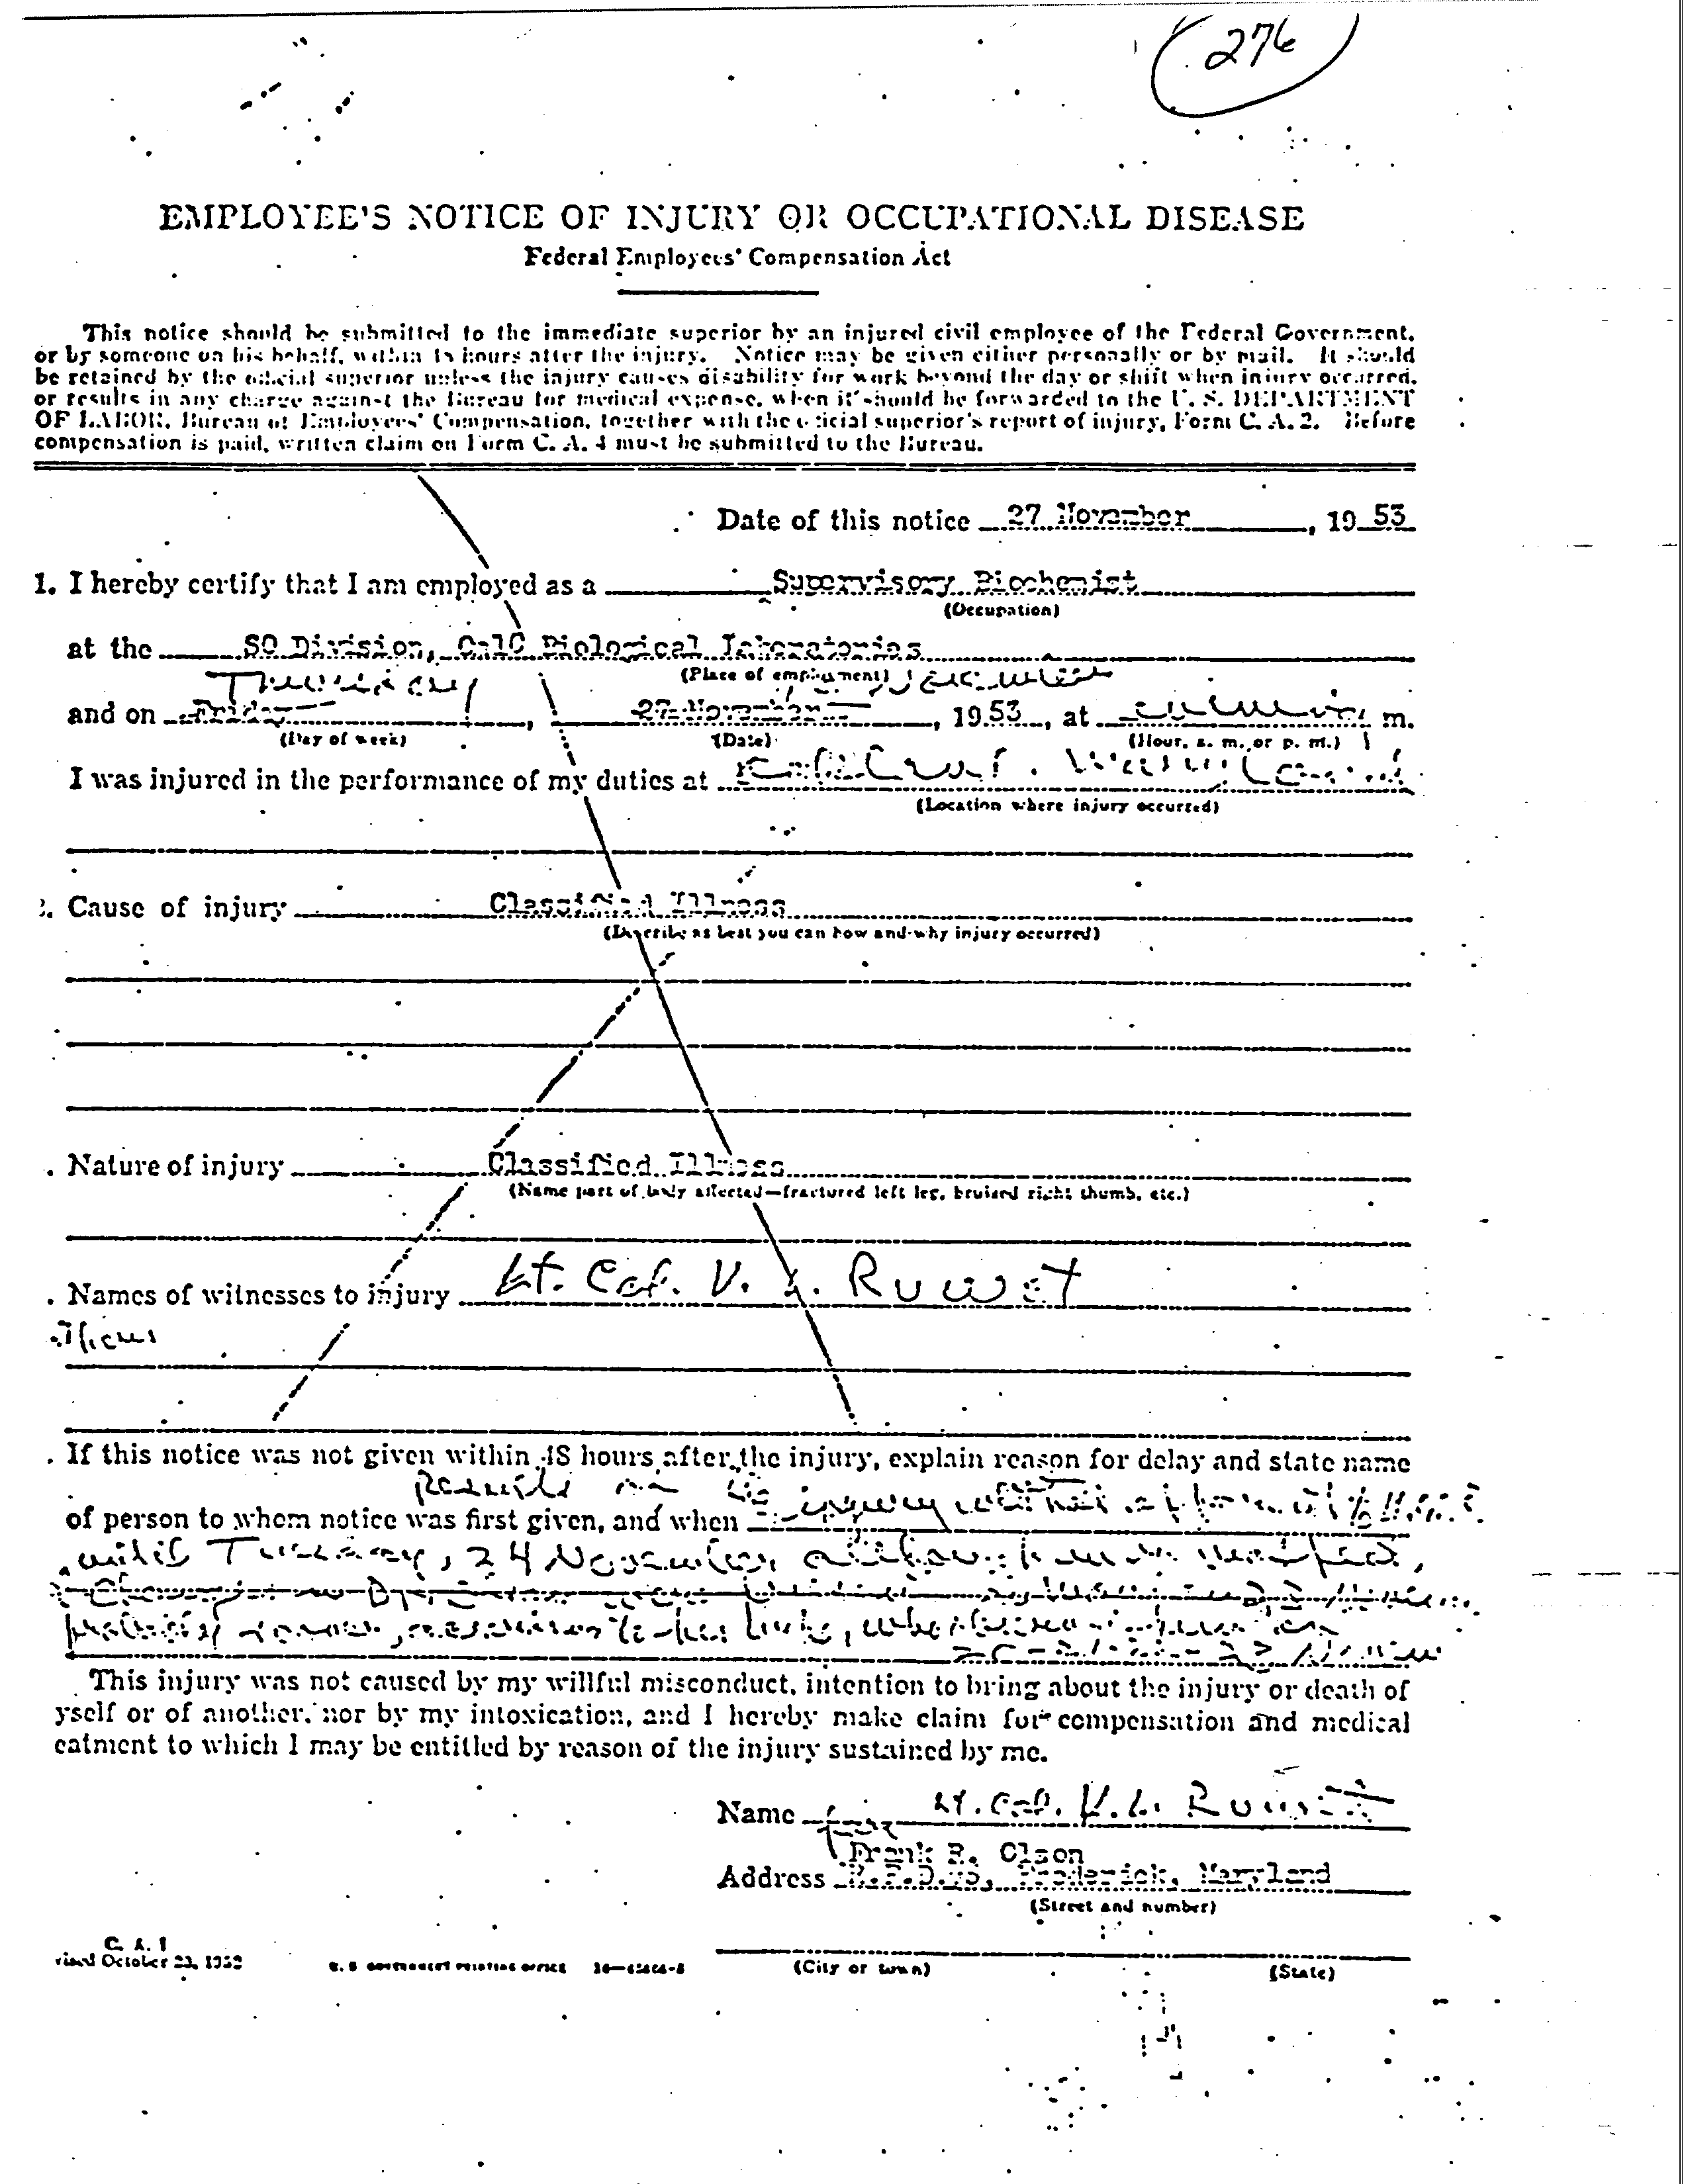 276
EMPLOYEE'S NOTICE OF INJURY OR OCCUPATIONAL DISEASE
Federal Employees' Compensation Act
This notice should be submitted to the immediate superior by an injured civil employee of the Federal Government,
or by someone on his behalf, within 48 hours after the injury. Notice may be given either personally or by mail. It should
be retained by the official superior unless the injury causes disability for work beyond the day or shift when injury occurred,
or results in any charge against the Bureau for medical expense, when it should be forwarded to the U. S. DEPARTMENT
OF LABOR, Bureau of Employees' Compensation, together with the official superior's report of injury, Form C. A. 2. Before
compensation is paid, written claim on Form C. A. 4 must be submitted to the Bureau.
Date of this notice 27 November, 19 53
1. I hereby certify that I am employed as a Supervisory Biochemist
(Occupation)
at the SO Division, CmlC Biological Laboratories
(Place of employment)
Thursday
and on Friday, 27 November, 19 53, at m.
(Day of week) (Date) (Hour, a. m. or p. m.)
I was injured in the performance of my duties at
(Location where injury occurred)
. Cause of injury Classified Illness
(Describe as best you can how and why injury occurred)
. Nature of injury Classified Illness
(Name part of body affected—fractured left leg, bruised right thumb, etc.)
. Names of witnesses to injury Lt. Col. V. L. Ruwet
. If this notice was not given within 48 hours after the injury, explain reason for delay and state name
of person to whom notice was first given, and when
until Tuesday, 24 November,
This injury was not caused by my willful misconduct, intention to bring about the injury or death of
yself or of another, nor by my intoxication, and I hereby make claim for compensation and medical
eatment to which I may be entitled by reason of the injury sustained by me.
Name for Lt. Col. V. L. Ruwet
Frank R. Olson
Address R.F.D. Frederick, Maryland
(Street and number)
C. A. 1
vised October 23, 1952 U. S. GOVERNMENT PRINTING OFFICE (City or town) (State)